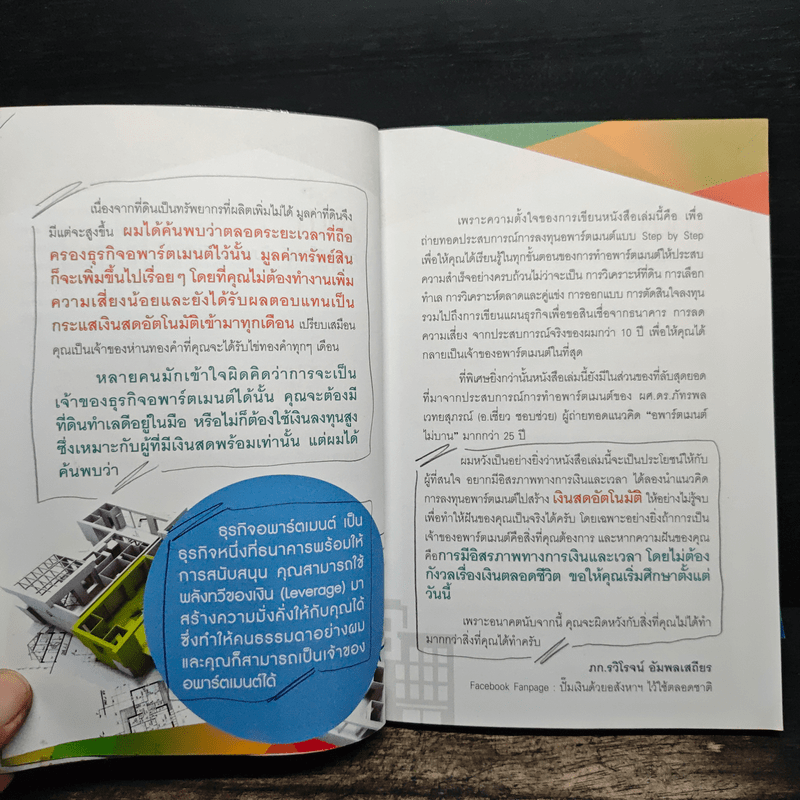 เนื่องจากที่ดินเป็นทรัพยากรที่ผลิตเพิ่มไม่ได้ มูลค่าที่ดินจึง
มีแต่จะสูงขึ้น ผมได้ค้นพบว่าตลอดระยะเวลาที่ถือ
ครองธุรกิจอพาร์ตเมนต์ไว้นั้น มูลค่าทรัพย์สิน
ก็จะเพิ่มขึ้นไปเรื่อยๆ โดยที่คุณไม่ต้องทำงานเพิ่ม
ความเสี่ยงน้อยและยังได้รับผลตอบแทนเป็น
กระแสเงินสดอัตโนมัติเข้ามาทุกเดือน เปรียบเสมือน
คุณเป็นเจ้าของห่านทองคำที่คุณจะได้รับไข่ทองคำทุกๆ เดือน
หลายคนมักเข้าใจผิดคิดว่าการจะเป็น
เจ้าของธุรกิจอพาร์ตเมนต์ได้นั้น คุณจะต้องมี
ที่ดินทำเลดีอยู่ในมือ หรือไม่ก็ต้องใช้เงินลงทุนสูง
ซึ่งเหมาะกับผู้ที่มีเงินสดพร้อมเท่านั้น แต่ผมได้
ค้นพบว่า
ธุรกิจอพาร์ตเมนต์ เป็น
ธุรกิจหนึ่งที่ธนาคารพร้อมให้
การสนับสนุน คุณสามารถใช้
พลังทวีของเงิน (Leverage) มา
สร้างความมั่งคั่งให้กับคุณได้
ซึ่งทำให้คนธรรมดาอย่างผม
และคุณก็สามารถเป็นเจ้าของ
อพาร์ตเมนต์ได้
เพราะความตั้งใจของการเขียนหนังสือเล่มนี้คือ เพื่อ
ถ่ายทอดประสบการณ์การลงทุนอพาร์ตเมนต์แบบ Step by Step
เพื่อให้คุณได้เรียนรู้ในทุกขั้นตอนของการทำอพาร์ตเมนต์ให้ประสบ
ความสำเร็จอย่างครบถ้วนไม่ว่าจะเป็น การวิเคราะห์ที่ดิน การเลือก
ทำเล การวิเคราะห์ตลาดและคู่แข่ง การออกแบบ การตัดสินใจลงทุน
รวมไปถึงการเขียนแผนธุรกิจเพื่อขอสินเชื่อจากธนาคาร การลด
ความเสี่ยง จากประสบการณ์จริงของผมกว่า 10 ปี เพื่อให้คุณได้
กลายเป็นเจ้าของอพาร์ตเมนต์ในที่สุด
ที่พิเศษยิ่งกว่านั้นหนังสือเล่มนี้ยังมีในส่วนของที่ลับสุดยอด
ที่มาจากประสบการณ์การทำอพาร์ตเมนต์ของ ผศ.ดร.ภัทรพล
เวทยสุภรณ์ (อ.เชี่ยว ชอบช่วย) ผู้ถ่ายทอดแนวคิด "อพาร์ตเมนต์
ไม่บาน" มากกว่า 25 ปี
ผมหวังเป็นอย่างยิ่งว่าหนังสือเล่มนี้จะเป็นประโยชน์ให้กับ
ผู้ที่สนใจ อยากมีอิสรภาพทางการเงินและเวลา ได้ลองนำแนวคิด
การลงทุนอพาร์ตเมนต์ไปสร้าง เงินสดอัตโนมัติ ให้อย่างไม่รู้จบ
เพื่อทำให้ฝันของคุณเป็นจริงได้ครับ โดยเฉพาะอย่างยิ่งถ้าการเป็น
เจ้าของอพาร์ตเมนต์คือสิ่งที่คุณต้องการ และหากความฝันของคุณ
คือการมีอิสรภาพทางการเงินและเวลา โดยไม่ต้อง
กังวลเรื่องเงินตลอดชีวิต ขอให้คุณเริ่มศึกษาตั้งแต่
วันนี้
เพราะอนาคตนับจากนี้ คุณจะผิดหวังกับสิ่งที่คุณไม่ได้ทำ
มากกว่าสิ่งที่คุณได้ทำครับ
ภก.รวิโรจน์ อัมพลเสถียร
Facebook Fanpage : ปั๊มเงินด้วยอสังหาฯ ไว้ใช้ตลอดชาติ